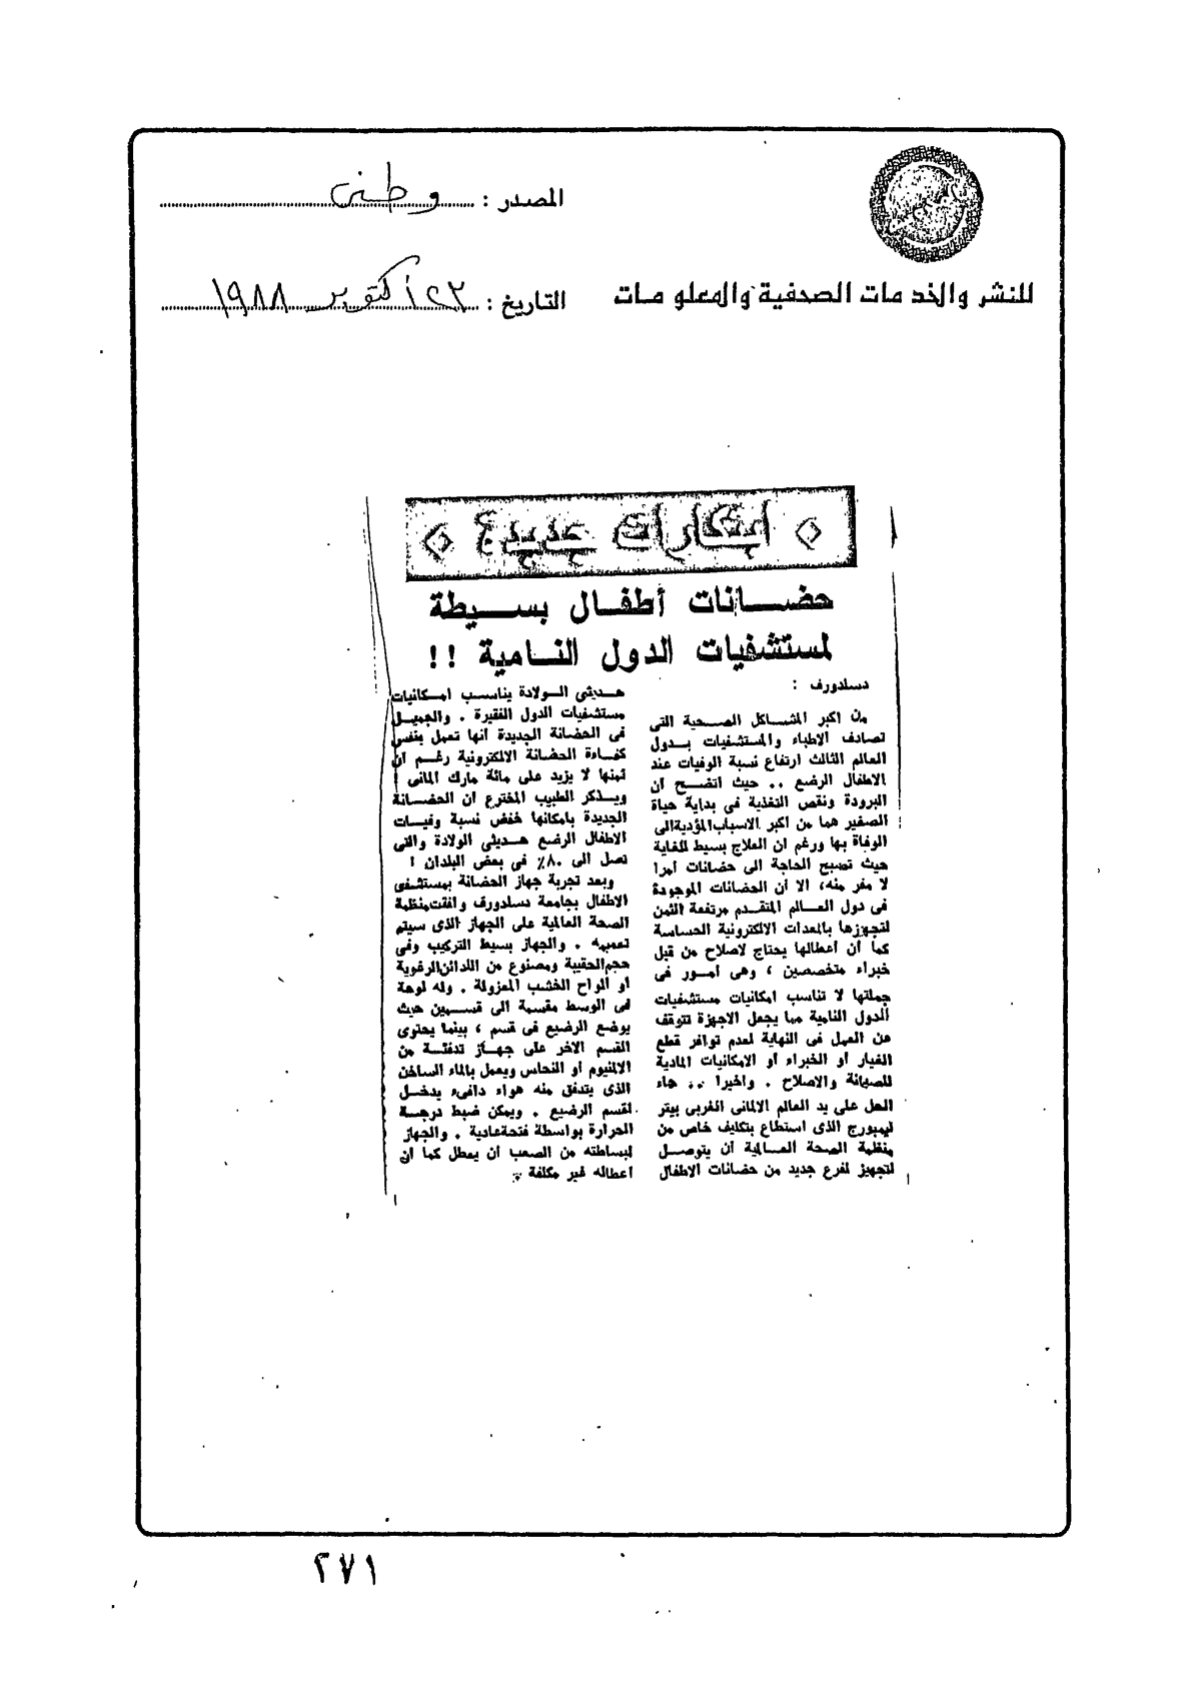 المصدر : وطنى
للنشر والخدمات الصحفية والمعلومات
التاريخ : ٢٣ أكتوبر ١٩٨٨
ابتكارات جديدة
حضـــانات أطفــال بســـيطة
لمستشفيات الدول النــامية !!
دسلدورف :
من اكبر المشاكل الصـحية التى
تصادف الاطباء والمستشفيات بـدول
العالم الثالث ارتفاع نسبة الوفيات عند
الاطفال الرضع .. حيث اتضــح ان
البرودة ونقص التغذية فى بداية حياة
الصغير هما من اكبر الاسباب المؤدية الى
الوفاة بها ورغم ان العلاج بسيط للغاية
حيث تصبح الحاجة الى حضانات أمرا
لا مفر منه، الا أن الحضانات الموجودة
فى دول العـــالم المتقــدم مرتفعة الثمن
لتجهيزها بالمعدات الالكترونية الحساسة
كما أن أعطالها يحتاج لاصلاح من قبل
خبراء متخصصين ، وهى امــور فى
جملتها لا تناسب امكانيات مستشفيات
الدول النامية مما يجعل الاجهزة تتوقف
عن العمل فى النهاية لعدم توافر قطع
الغيار أو الخبراء أو الامكانيات المادية
للصيانة والاصلاح . واخيرا .. جاء
الحل على يد العالم الالمانى الغربى بيتر
ليمبورج الذى استطاع بتكليف خاص من
منظمة الصحة العــالمية أن يتوصــل
لتجهيز لفرع جديد من حضانات الاطفال
هــديثى الــولادة يناســب امــكانيات
مستشفيات الدول الفقيرة . والجميــل
فى الحضانة الجديدة أنها تعمل بنفس
كفــاءة الحضانة الالكترونية رغــم أن
ثمنها لا يزيد على مائة مارك المانى
ويــذكر الطبيب المخترع ان الحضــانة
الجديدة بامكانها خفض نسبة وفيــات
الاطفال الرضع هــديثى الولادة والتى
تصل الى ٨٠٪ فى بعض البلدان !
وبعد تجربة جهاز الحضانة بمستشفى
الاطفال بجامعة دسلدورف وافقت منظمة
الصحة العالمية على الجهاز الذى سيتم
تعميمه . والجهاز بسيط التركيب وفى
حجم الحقيبة ومصنوع من اللدائن الرغوية
أو ألواح الخشب المعزولة . وله لوحة
فى الوسط مقسمة الى قســمين حيث
يوضع الرضيع فى قسم ، بينما يحتوى
القسم الاخر على جهــاز تدفئــة من
الالمنيوم أو النحاس ويعمل بالماء الساخن
الذى يتدفق منه هواء دافىء يدخــل
لقسم الرضيع . ويمكن ضبط درجــة
الحرارة بواسطة فتحة عادية . والجهاز
لبساطته من الصعب أن يعطل كما أن
أعطاله غير مكلفة .
٢٧١